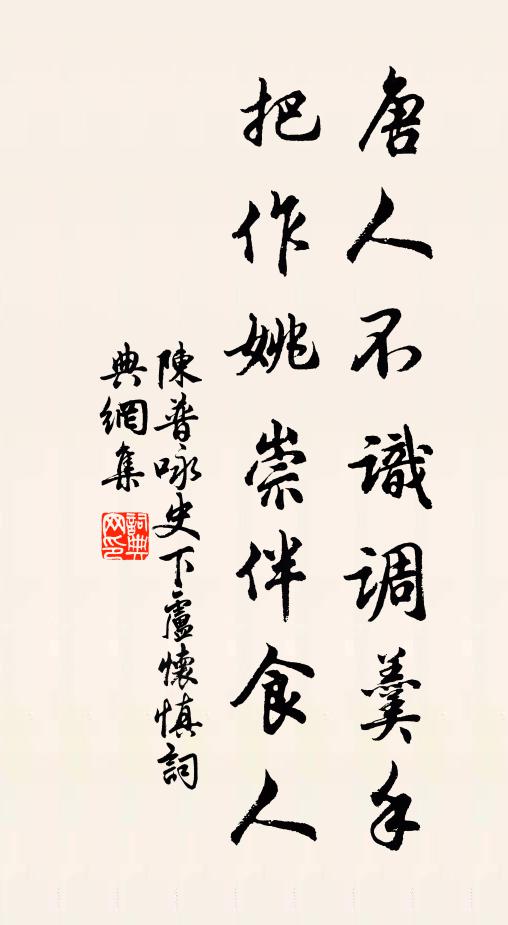 唐人不識調羹手
把作姚崇伴食人
陳普咏史下盧懷慎詞
典網集
詞典網印